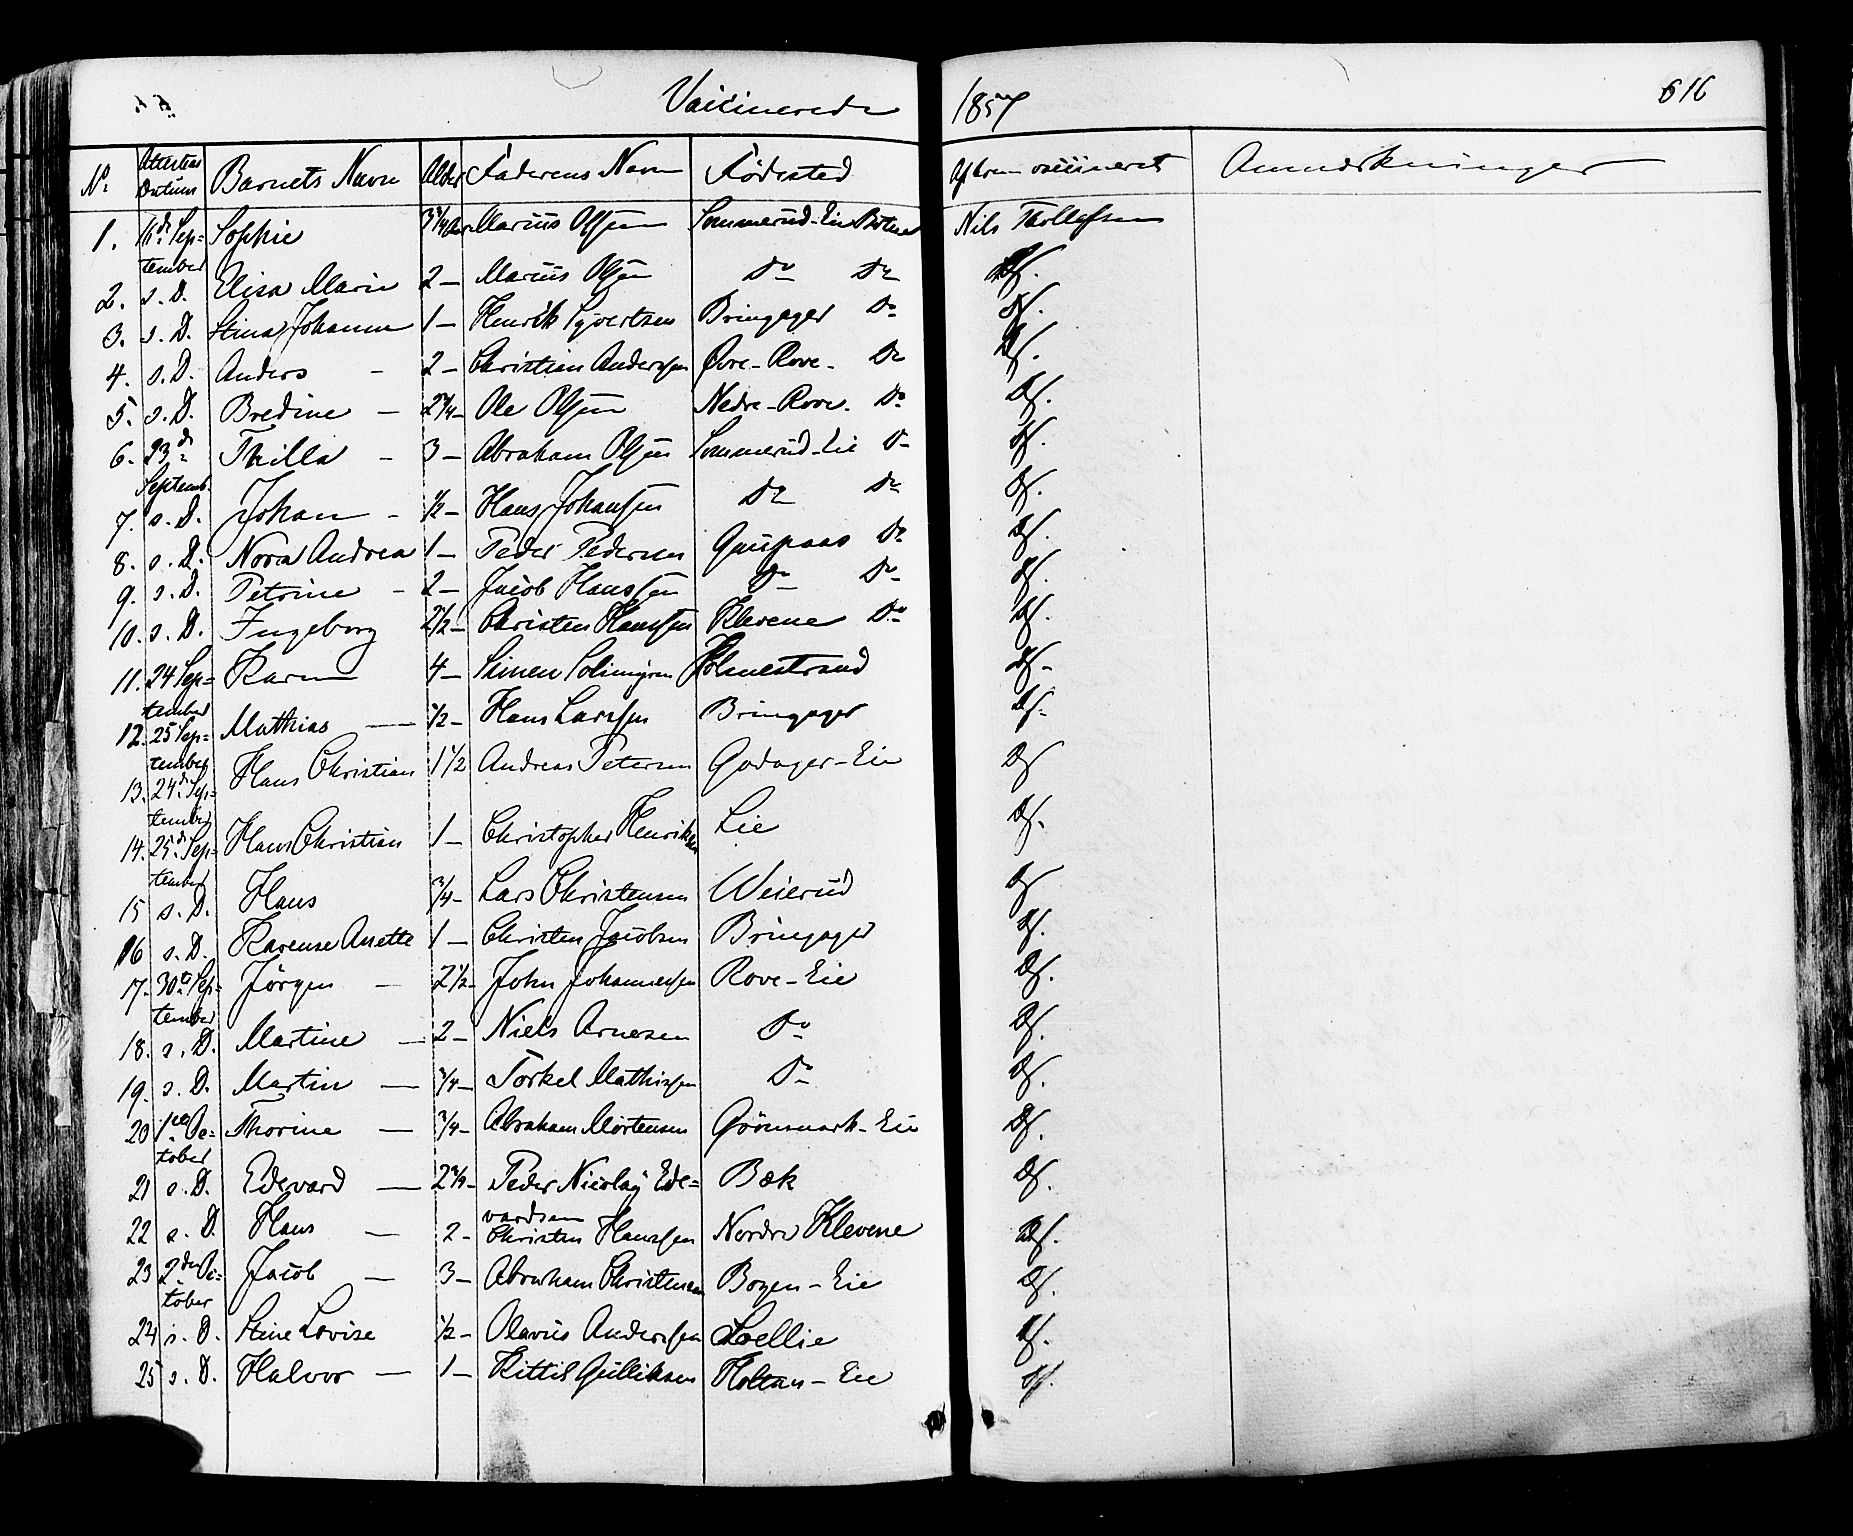 Vaccinerede 1857 616
No. Attestens Datum Barnets Navn Alder Faderens Navn Fødested Af hvem vaccineret Anmærkninger
1. 16de September Sophie 3 3/4 Aar Marius Olsen Sommerud-Eie Botne Nils Thollefsen
2. s. D. Elisa Marie 2 — Marius Olsen Do Do Df.
3. s. D. Stina Johanne 1 — Henrik Syvertsen Bringager Do Df.
4. s. D. Anders - 2 — Christian Anderssen Øvre-Rove - Do Df.
5. s. D. Bredine — 2 3/4 — Ole Olsen Nedre-Rove. Do Df.
6. 23de Septemb. Thilla - 3 — Abraham Olsen Sommerud-Eie Do Df.
7. s. D. Johan - 1/2 — Hans Johansen Do Do Df.
8. s. D. Nora Andrea 1 — Peder Pedersen Gaupaas Do Df.
9. s. D. Petrine - 2 — Jacob Hanssen Do Do Df.
10. s. D. Ingeborg 2 1/2 — Christen Hanssen Klevene Do Df.
11. 24 September Karen 4 — Simen Holmestrand Df.
12. 25 September Mathias — 1/2 — Hans Larssen Bringager Df.
13. 24de September Hans Christian 1 1/2 Andreas Petersen Gadager-Eie Df
14. 25de September Hans Christian 1 — Christopher Henriksen Lie Df.
15 s. D. Hans 3/4 — Lars Christensen Weierud Df
16 s. D. Karense Anette 1 — Christen Jacobsen Bringager Df.
17. 30te September Jørgen — 2 1/2 — John Johannessen Rove-Eie Df.
18. s. D. Martine — 2 — Niels Arnesen Do Df.
19. s. D. Martin — 3/4 — Torkel Mathissen Do Df.
20 1ste October Thorine — 3/4 — Abraham Mortensen Grønsmark-Eie Df.
21 s. D. Edevard — 2 1/2 — Peder Nicolay Ede=
vardsen Bæk Df.
22 s. D. Hans — 2 - Christen Hanssen Nordre Klevene Df.
23 2den October Jacob — 3 — Abraham Christensen Bogen-Eie Df.
24 s. D. Stine Lovise 1/2 — Olavus Anderssen Loellie Df.
25 s. D. Halvor — 1 — Kittil Gulliksen Holtan-Eie Df.